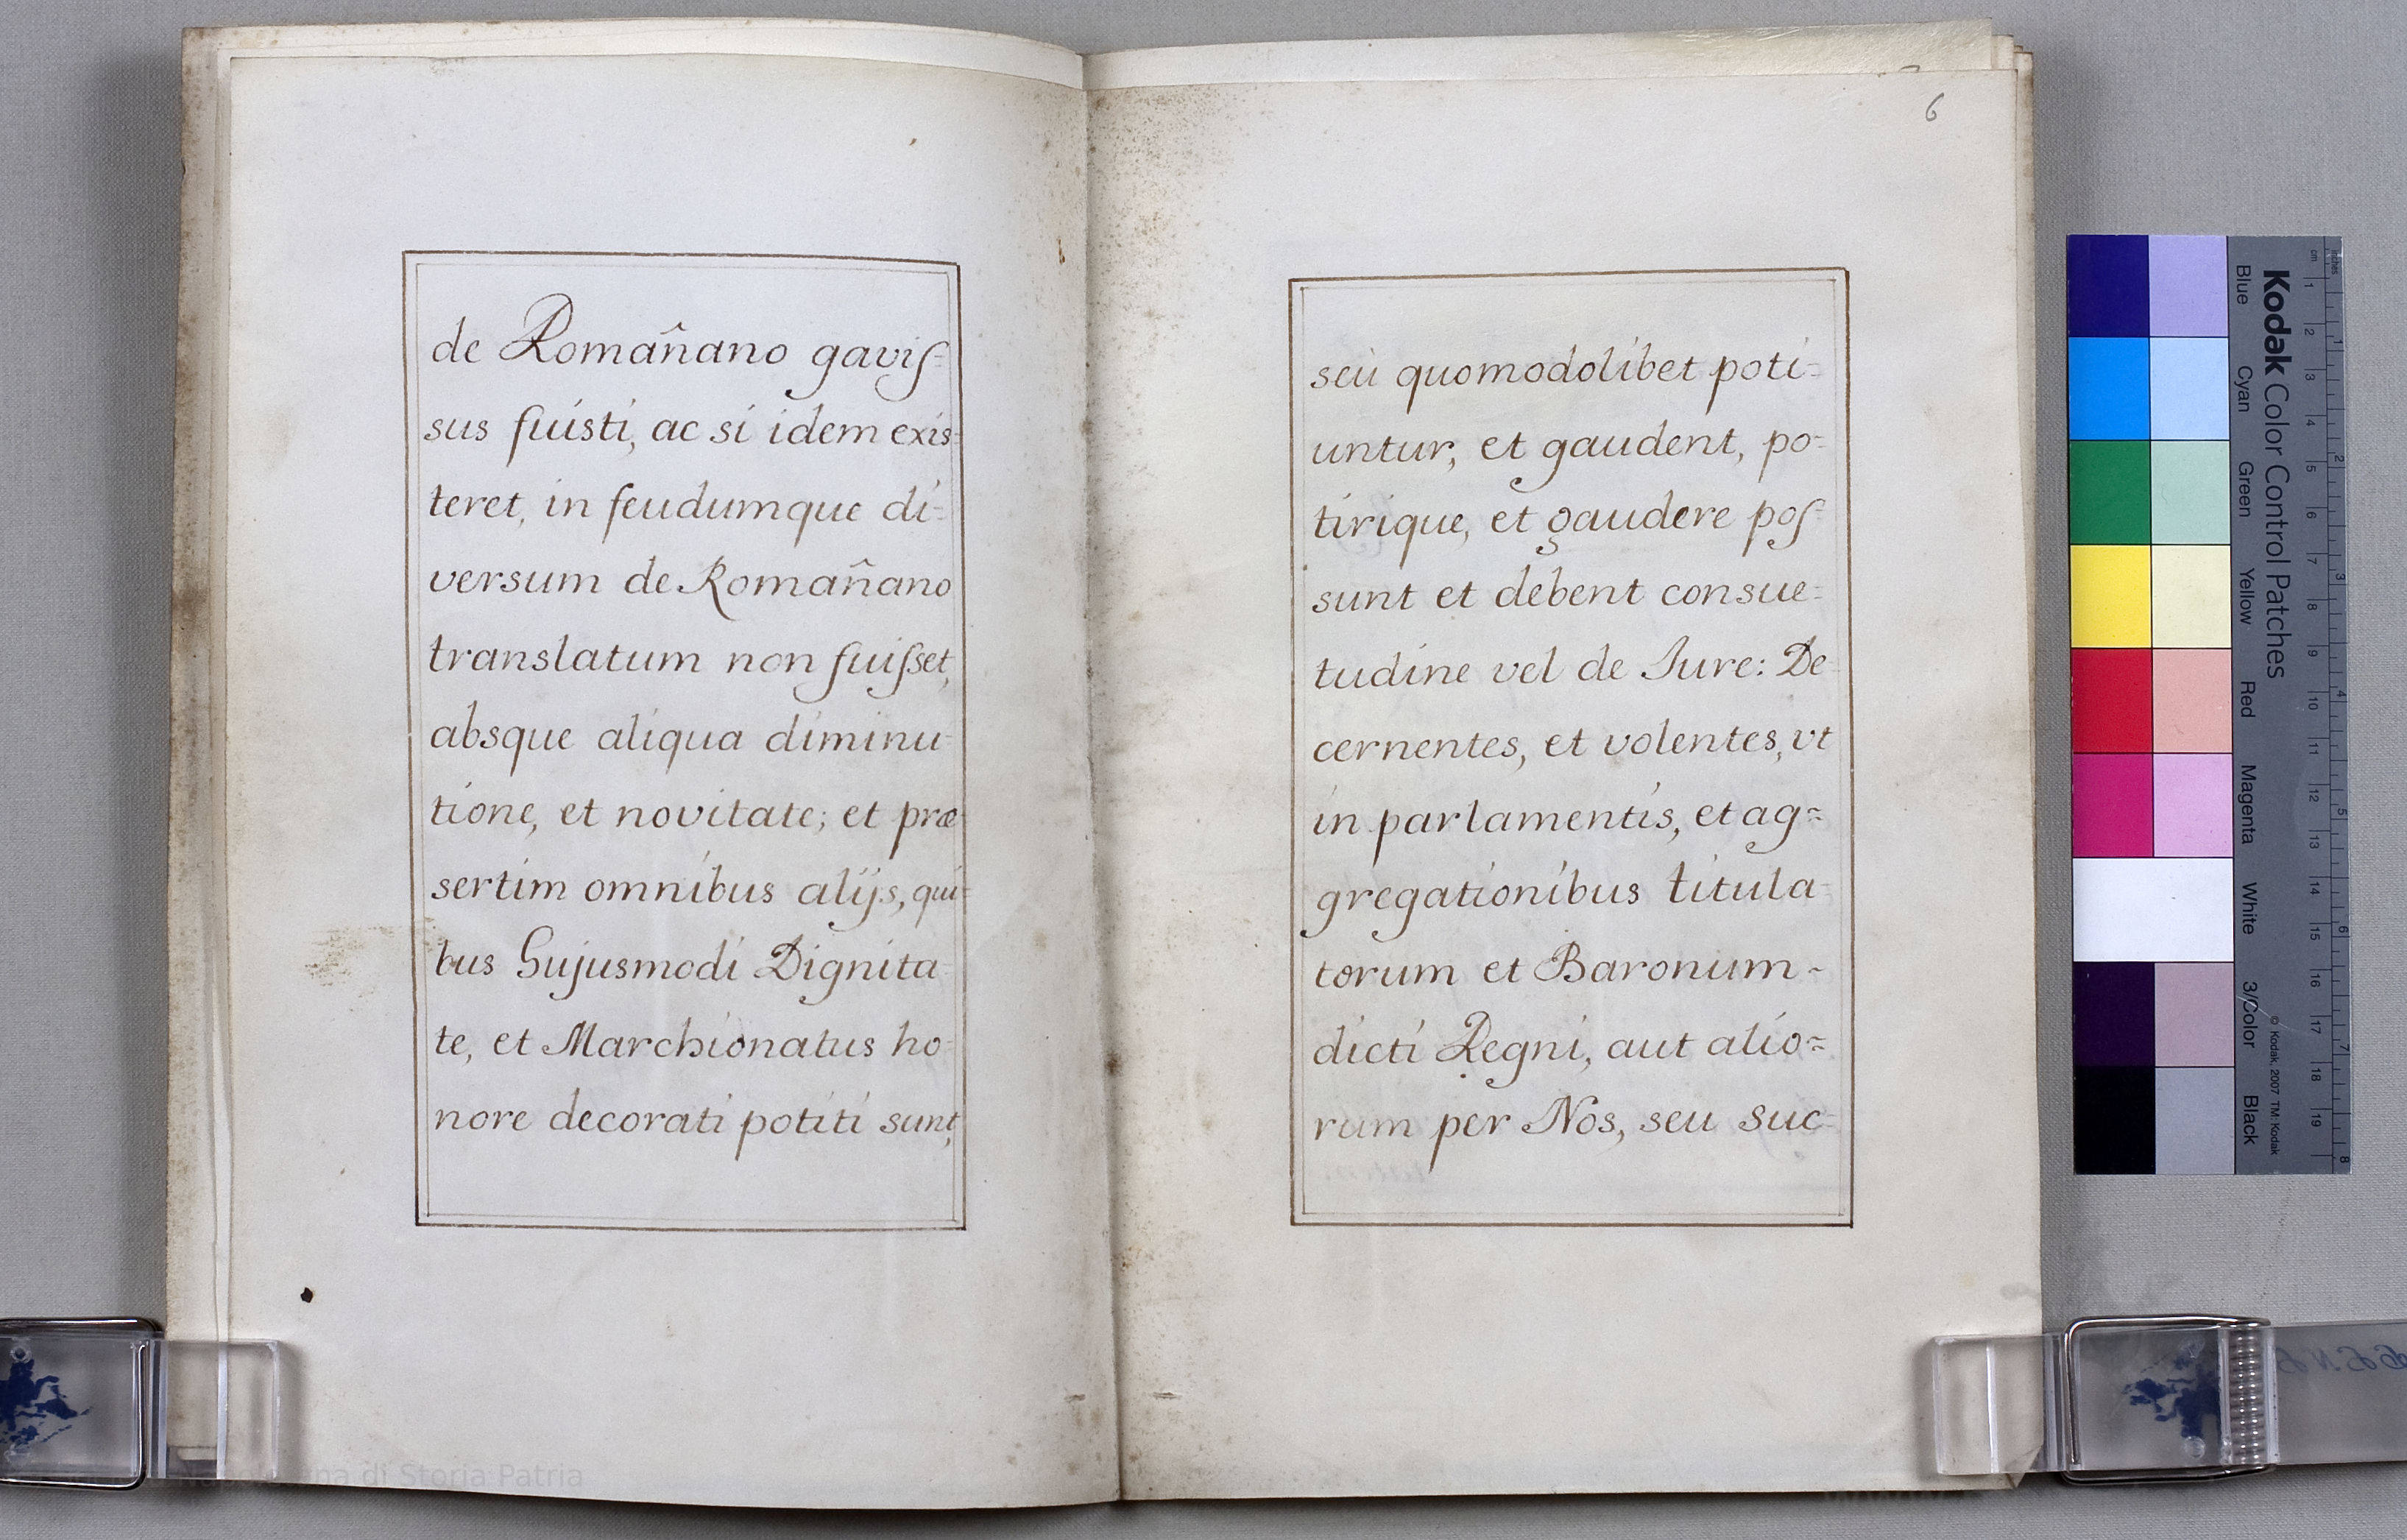 de Romañano gavis-
sus fuisti, ac si idem exis-
teret, in feudumque di-
versum de Romañano
translatum non fuisset,
absque aliqua diminu-
tione, et novitate; et præ-
sertim omnibus alijs, qui-
bus hujusmodi Dignita-
te, et Marchionatus ho-
nore decorati potiti sunt,
6
seu quomodolibet poti-
untur, et gaudent, po-
tirique, et gaudere pos-
sunt et debent consue-
tudine vel de Iure: De-
cernentes, et volentes, vt
in parlamentis, et ag-
gregationibus titula-
torum et Baronum -
dicti Regni, aut alio-
rum per Nos, seu suc-
Kodak Color Control Patches
Blue Cyan Green Yellow Red Magenta White 3/Color Black
© Kodak, 2007 TM: Kodak
inches
cm
1 2 3 4 5 6 7 8 9 10 11 12 13 14 15 16 17 18 19
1 2 3 4 5 6 7 8
di Storia Patria